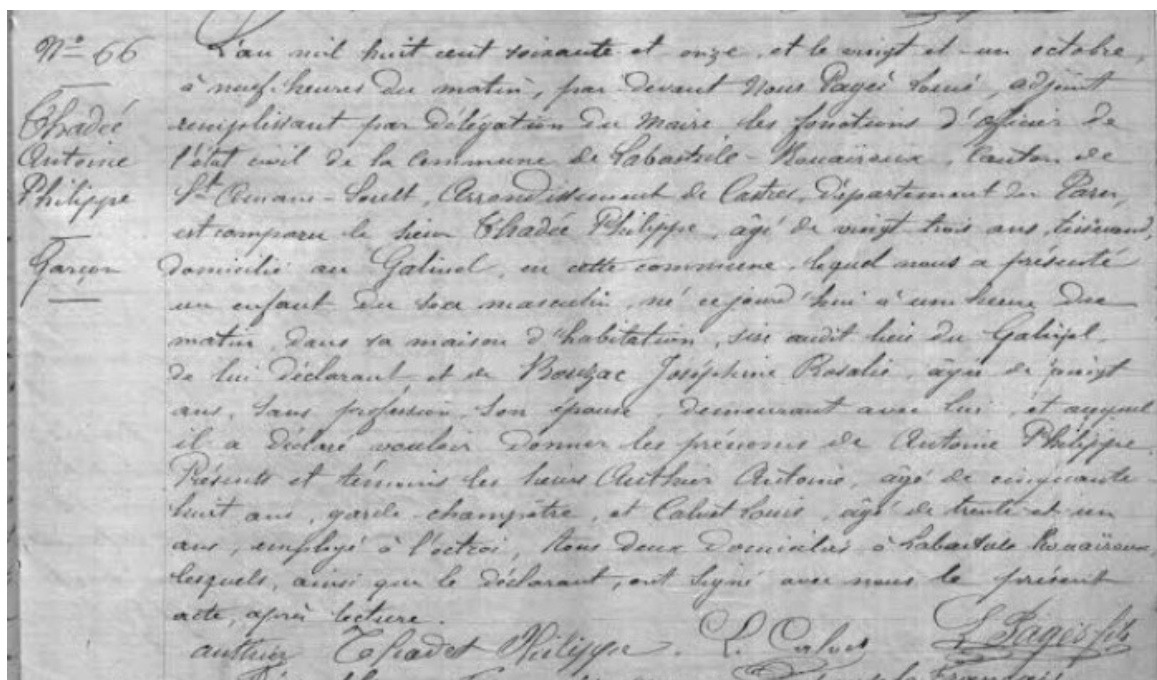 N° 66
Thadée
Antoine
Philippe
Garçon
L'an mil huit cent soixante et onze, et le vingt et un octobre,
à neuf heures du matin, par devant Nous Pagès Louis, adjoint
remplissant par délégation du Maire les fonctions d'officier de
l'état civil de la Commune de Labastide-Rouairoux, Canton de
St Amans-Soult, Arrondissement de Castres, Département du Tarn,
est comparu le sieur Thadée Philippe, âgé de vingt trois ans, tisserand,
domicilié au Galinel, en cette commune, lequel nous a présenté
un enfant du sexe masculin, né ce jourd'hui à une heure du
matin, dans sa maison d'habitation, sise audit lieu du
de lui déclarant et de Bouzac Joséphine Rosalie, âgée de vingt
ans, sans profession, son épouse, demeurant avec lui, et auquel
il a déclaré vouloir donner les prénoms de Antoine Philippe.
Présents et témoins les sieurs Authier Antoine, âgé de cinquante
huit ans, garde-champêtre, et Calvet Louis, âgé de trente et un
ans, employé à l'octroi, tous deux domiciliés à Labastide Rouairoux,
lesquels, ainsi que le déclarant, ont signé avec nous le présent
acte, après lecture.
authier Thadet Philippe. L. Calvet L. Pagès fils